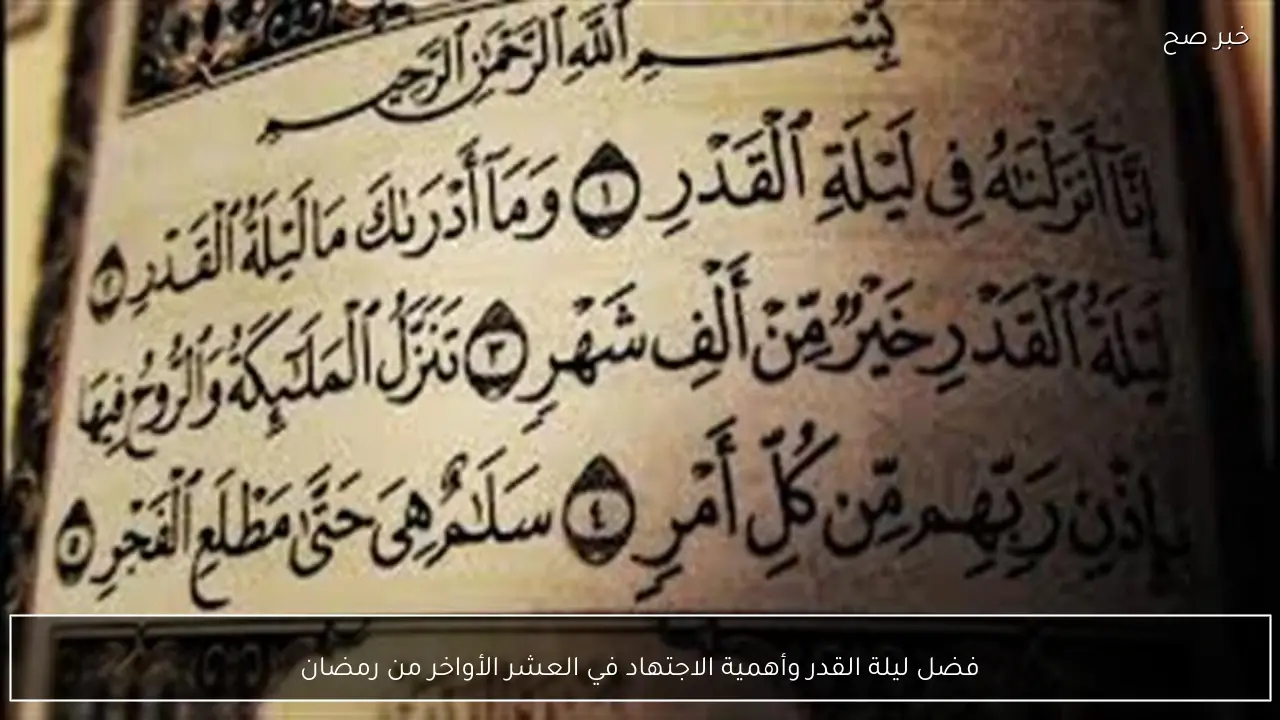 خبر صح
بِسْمِ ٱللَّهِ ٱلرَّحْمَٰنِ ٱلرَّحِيمِ
إِنَّآ أَنزَلْنَٰهُ فِى لَيْلَةِ ٱلْقَدْرِ ١ وَمَآ أَدْرَىٰكَ مَا لَيْلَةُ ٱلْقَدْرِ ٢
لَيْلَةُ ٱلْقَدْرِ خَيْرٌ مِّنْ أَلْفِ شَهْرٍ ٣ تَنَزَّلُ ٱلْمَلَٰٓئِكَةُ وَٱلرُّوحُ فِيهَا
بِإِذْنِ رَبِّهِم مِّن كُلِّ أَمْرٍ ٤ سَلَٰمٌ هِىَ حَتَّىٰ مَطْلَعِ ٱلْفَجْرِ ٥
فضل ليلة القدر وأهمية الاجتهاد في العشر الأواخر من رمضان